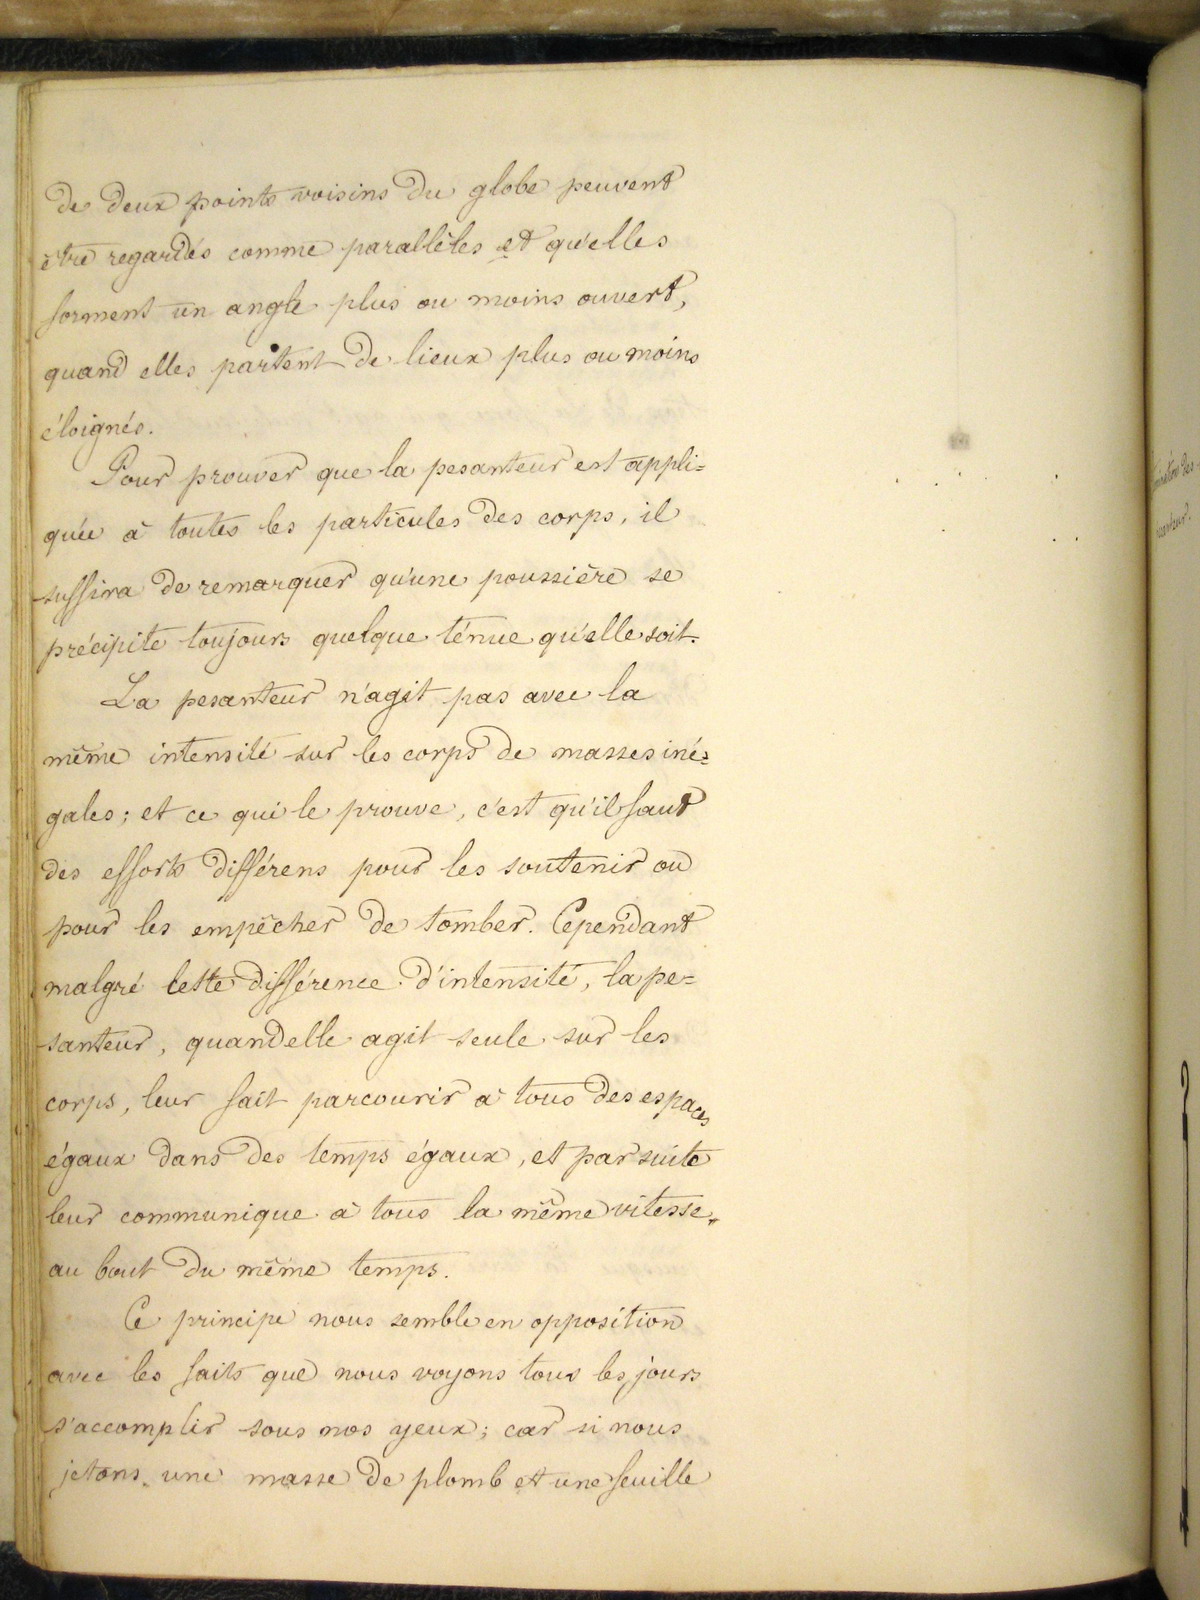 de deux points voisins du globe peuvent
être regardés comme parallèles et qu'elles
forment un angle plus ou moins ouvert,
quand elles partent de lieux plus ou moins
éloignés.
Pour prouver que la pesanteur est appli=
quée à toutes les particules des corps, il
suffira de remarquer qu'une poussière se
précipite toujours quelque ténue qu'elle soit.
La pesanteur n'agit pas avec la
même intensité sur les corps de masses iné=
gales; et ce qui le prouve, c'est qu'il faut
des efforts différens pour les soutenir ou
pour les empêcher de tomber. Cependant
malgré cette différence d'intensité, la pe=
santeur, quand elle agit seule sur les
corps, leur fait parcourir à tous des espaces
égaux dans des temps égaux, et par suite
leur communique à tous la même vitesse
au bout du même temps.
Ce principe nous semble en opposition
avec les faits que nous voyons tous les jours
s'accomplir sous nos yeux; car si nous
jetons une masse de plomb et une feuille